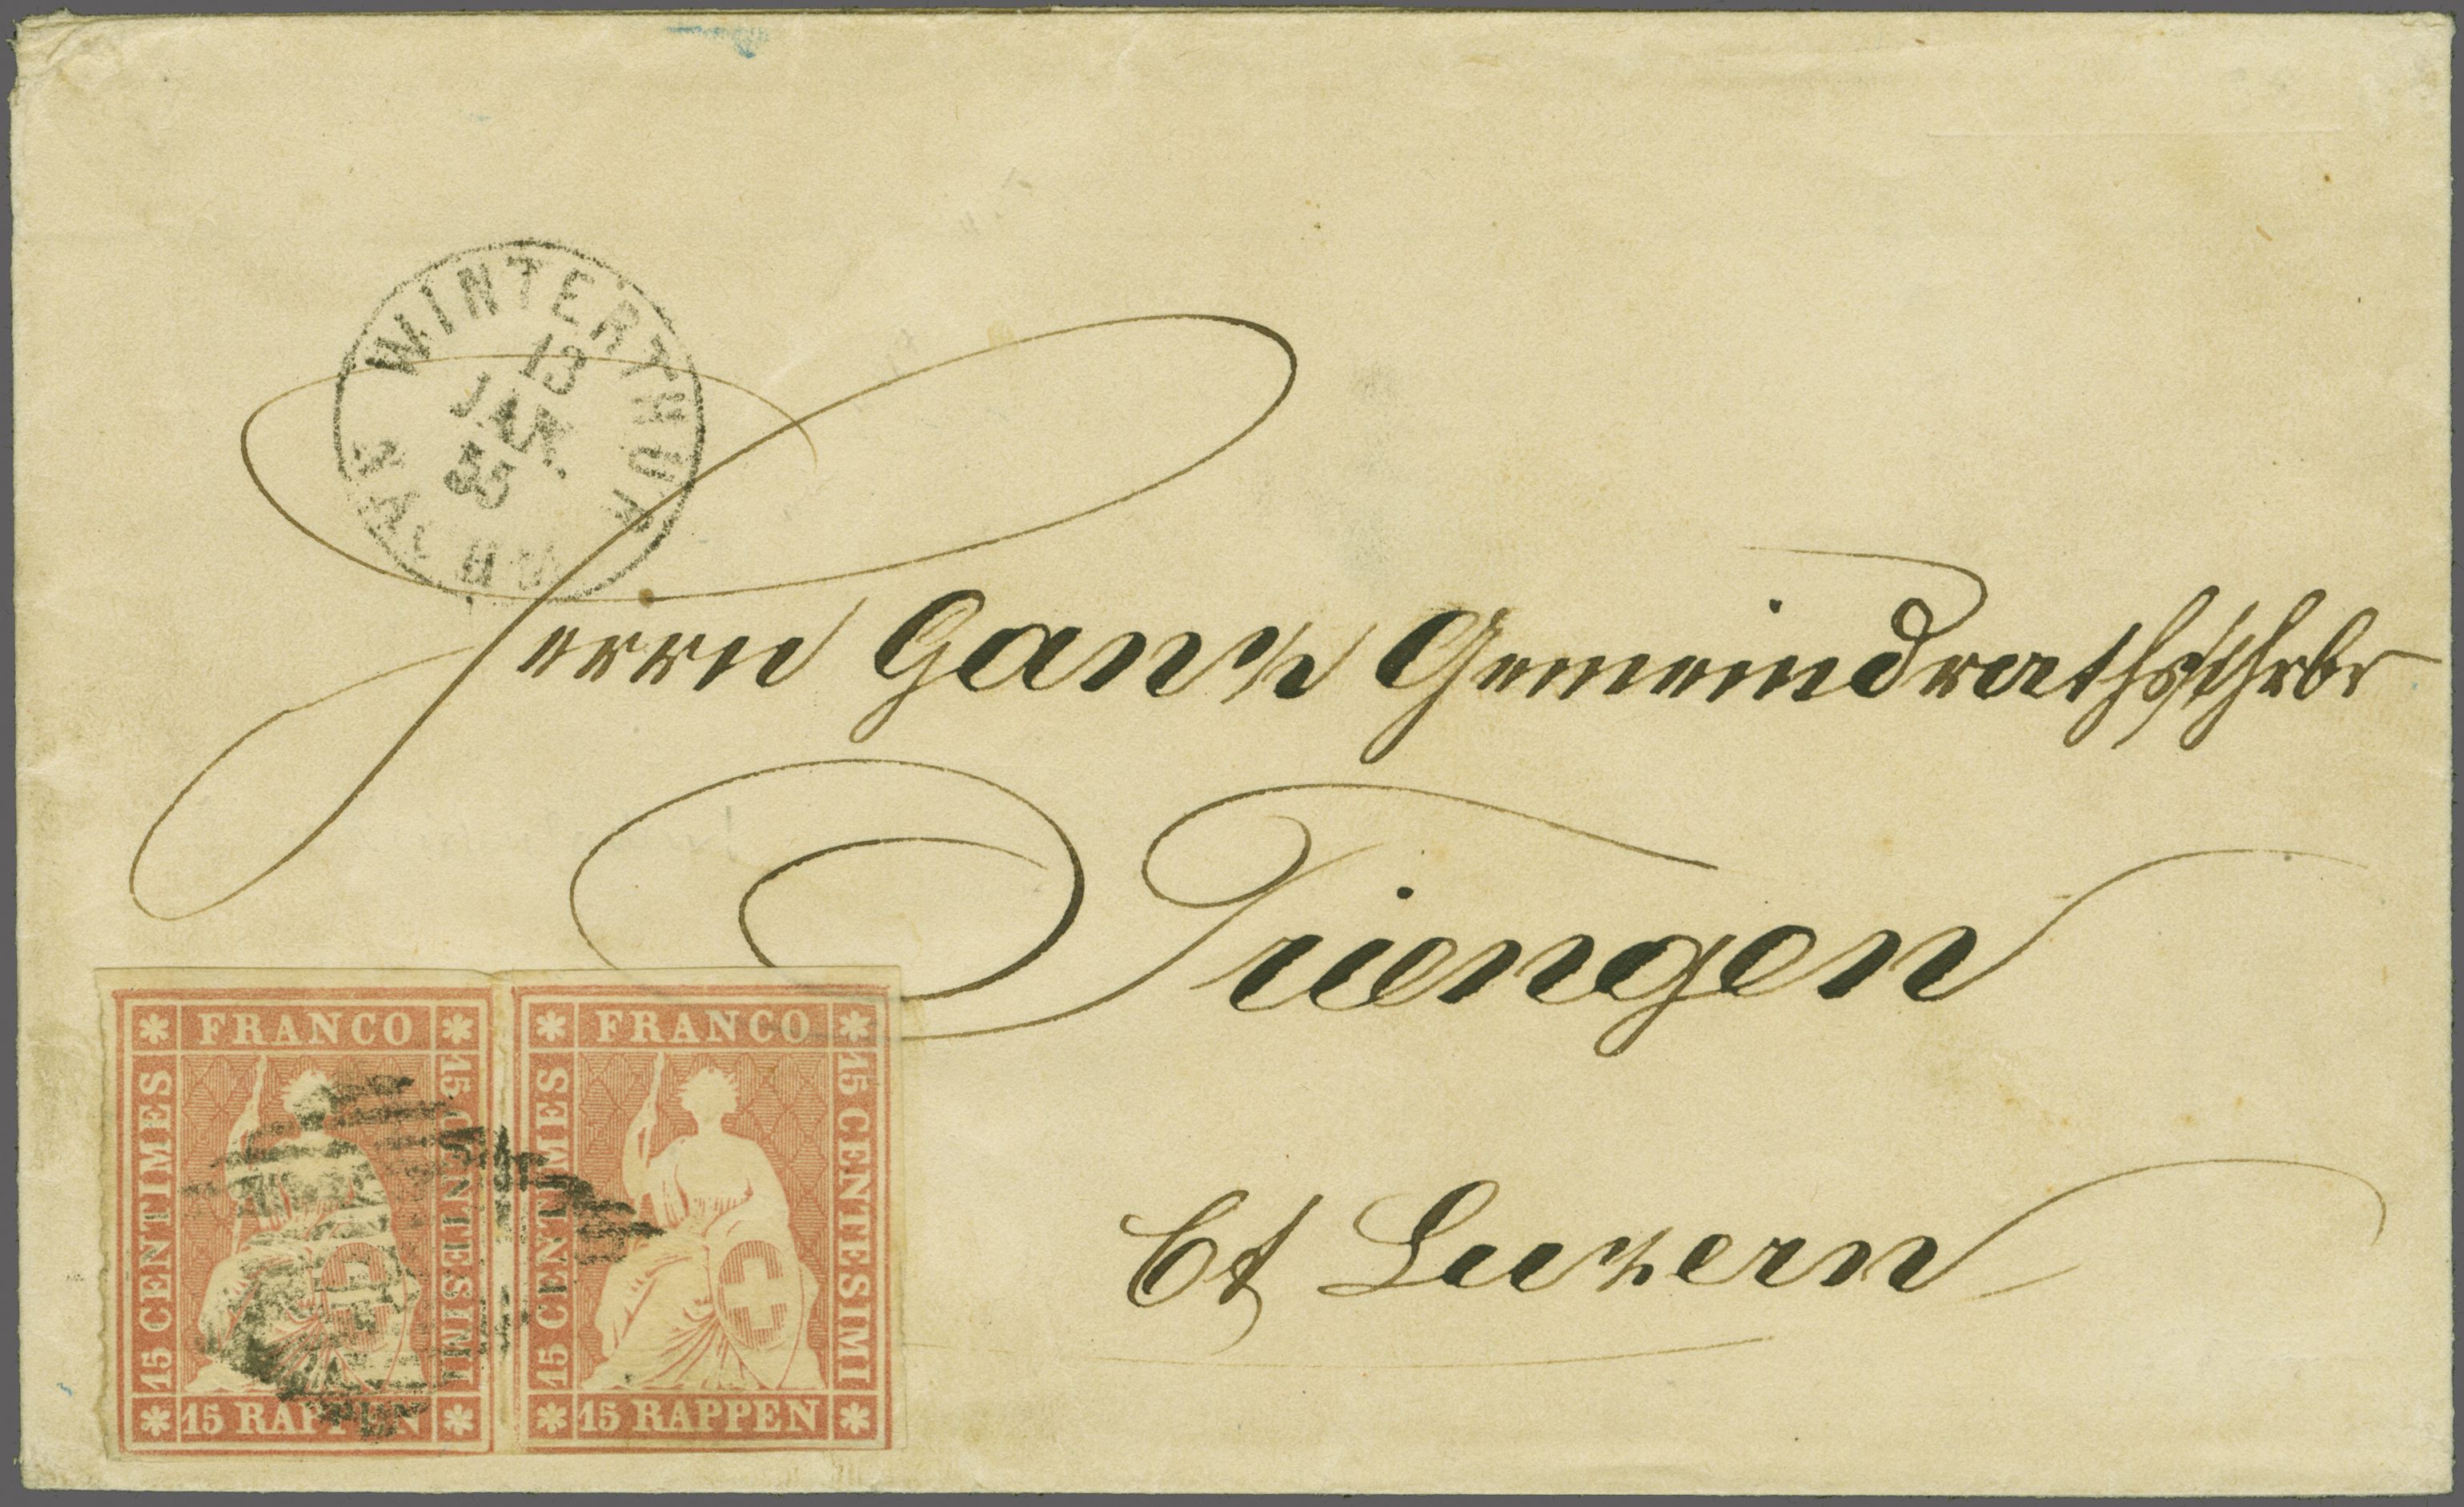 WINTERTHUR
13
JAN
55
Herrn Ganz Gemeindrathsschrbr
Triengen
Ct Luzern
FRANCO
15 CENTIMES
15 CENTESIMI
15 RAPPEN
FRANCO
15 CENTIMES
15 CENTESIMI
15 RAPPEN